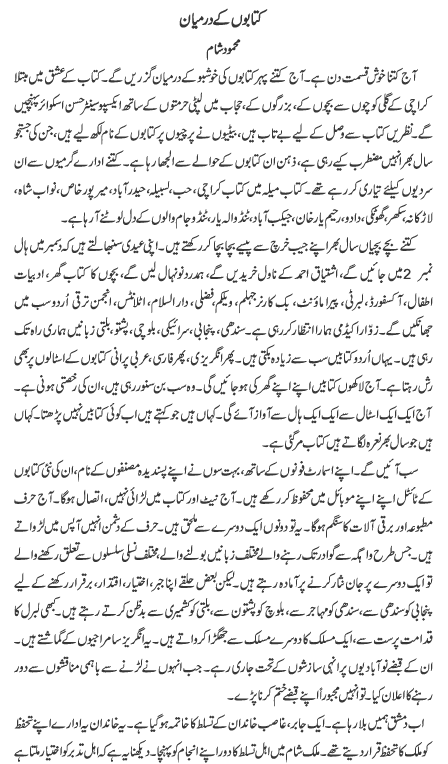 کتابوں کے درمیان
محمود شام
آج کتنا خوش قسمت دن ہے۔ آج کتنے پہر کتابوں کی خوشبو کے درمیان گزریں گے۔ کتاب کے عشق میں مبتلا
کراچی کے گلی کوچوں سے بچوں کے، بزرگوں کے، حجاب میں لپٹی حرمتوں کے ساتھ ایکسپو سینٹر حسن اسکوائر پہنچیں
گے۔ نظریں کتاب سے وصل کے لیے بے تاب ہیں، بیٹیوں نے پرچیوں پر کتابوں کے نام لکھ لیے ہیں، جن کی جستجو
سال بھر انہیں مضطرب کیے رہی ہے، ذہن ان کتابوں کے حوالے سے الجھا رہا ہے۔ کتنے ادارے گرمیوں سے ان
سردیوں کیلئے تیاری کر رہے تھے۔ کتاب میلہ میں کتاب کراچی، حب، لسبیلہ، حیدر آباد، میرپور خاص، نواب شاہ،
لاڑکانہ، سکھر، گھوٹکی، دادو، رحیم یار خان، جیکب آباد، ٹنڈو والہ یار، ٹنڈو جام والوں کے دل لوٹنے آ رہا ہے۔
کتنے بچے بچیاں سال بھر اپنے جیب خرچ سے پیسے بچا بچا کر رکھتے ہیں۔ اپنی عیدی سنبھالتے ہیں کہ دسمبر میں ہال
نمبر 2 میں جائیں گے، اشتیاق احمد کے ناول خریدیں گے، ہمدرد نونہال لیں گے، بچوں کا کتاب گھر، ادبیات
اطفال، آکسفورڈ، لبرٹی، پیراماؤنٹ، بک کارنر جہلم، ویلکم، فضلی، دارالسلام، اٹلانٹس، انجمن ترقی اُردو سب میں
جھانکیں گے۔ زوّار اکیڈمی ہمارا انتظار کر رہی ہے۔ سندھی، پنجابی، سرائیکی، بلوچی، پشتو، بلتی زبانیں ہماری راہ تک
رہی ہیں۔ یہاں اُردو کتابیں سب سے زیادہ بکتی ہیں۔ پھر انگریزی، پھر فارسی، عربی پرانی کتابوں کے اسٹالوں پر بھی
رش رہتا ہے۔ آج لاکھوں کتابیں اپنے اپنے گھر کی ہو جائیں گی۔ وہ سب بن سنور رہی ہیں، ان کی رخصتی ہونی ہے۔
آج ایک ایک اسٹال سے ایک ایک ہال سے آواز آئے گی۔ کہاں ہیں جو کہتے ہیں اب کوئی کتابیں نہیں پڑھتا۔ کہاں
ہیں جو سال بھر نعرہ لگاتے ہیں کتاب مر گئی ہے۔
سب آئیں گے۔ اپنے اسمارٹ فونوں کے ساتھ، بہت سوں نے اپنے پسندیدہ مصنفوں کے نام، ان کی نئی کتابوں
کے ٹائٹل اپنے اپنے موبائل میں محفوظ کر رکھے ہیں۔ آج نیٹ اور کتاب میں لڑائی نہیں، اتصال ہوگا۔ آج حرف
مطبوعہ اور برقی آلات کا سنگم ہوگا۔ یہ تو دونوں ایک دوسرے سے ملحق ہیں۔ حرف کے دشمن انہیں آپس میں لڑواتے
ہیں۔ جس طرح واہگہ سے گوادر تک رہنے والے مختلف زبانیں بولنے والے، مختلف نسلی سلسلوں سے تعلق رکھنے والے
تو ایک دوسرے پر جان نثار کرنے پر آمادہ رہتے ہیں۔ لیکن بعض حلقے اپنا جبر، اختیار، اقتدار، برقرار رکھنے کے لیے
پنجابی کو سندھی سے، سندھی کو مہاجر سے، بلوچ کو پشتون سے، بلتی کو کشمیری سے بدظن کرتے رہتے ہیں۔ کبھی لبرل کا
قدامت پرست سے، ایک مسلک کا دوسرے مسلک سے جھگڑا کرواتے ہیں۔ یہ انگریز سامراجیوں کے گماشتے ہیں۔
ان کے قبضے نو آبادیوں پر انہی سازشوں کے تحت جاری رہے۔ جب انہوں نے لڑنے سے باہمی مناقشوں سے دور
رہنے کا اعلان کیا۔ تو انہیں مجبوراً اپنے قبضے ختم کرنا پڑے۔
اب دمشق ہمیں بلا رہا ہے۔ ایک جابر، غاصب خاندان کے تسلط کا خاتمہ ہو گیا ہے۔ یہ خاندان یہ ادارے اپنے تحفظ
کو ملک کا تحفظ قرار دیتے تھے۔ ملک شام میں اہل تسلط کا دور اپنے انجام کو پہنچا۔ دیکھنا یہ ہے کہ اہل تدبر کو اختیار ملتا ہے